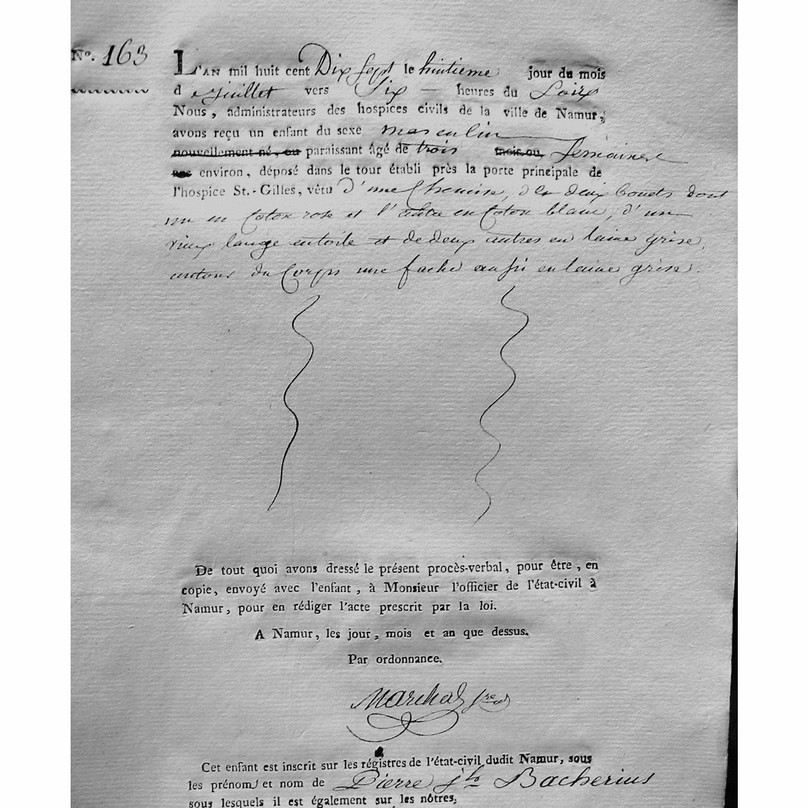 N.º 163
L'AN mil huit cent Dix Sept le huitieme jour du mois
d e Juillet vers Six — heures du Soir
Nous, administrateurs des hospices civils de la ville de Namur,
avons reçu un enfant du sexe masculin
nouvellement né, ou paraissant âgé de trois mois, ou, Semaines
environ, déposé dans le tour établi près la porte principale de
l'hospice St.-Gilles, vêtu d'une Chemise, de deux bonets dont
un en Coton rose et l'autre en Coton blanc, d'un
vieux lange en toile et de deux autres en laine grise,
autour du Corps une fache aussi en laine grise.
De tout quoi avons dressé le présent procès-verbal, pour être, en
copie, envoyé avec l'enfant, à Monsieur l'officier de l'état-civil à
Namur, pour en rédiger l'acte prescrit par la loi.
A Namur, les jour, mois et an que dessus.
Par ordonnance.
Marchal
Cet enfant est inscrit sur les régistres de l'état-civil dudit Namur, sous
les prénoms et nom de Pierre Bacherius
sous lesquels il est également sur les nôtres,